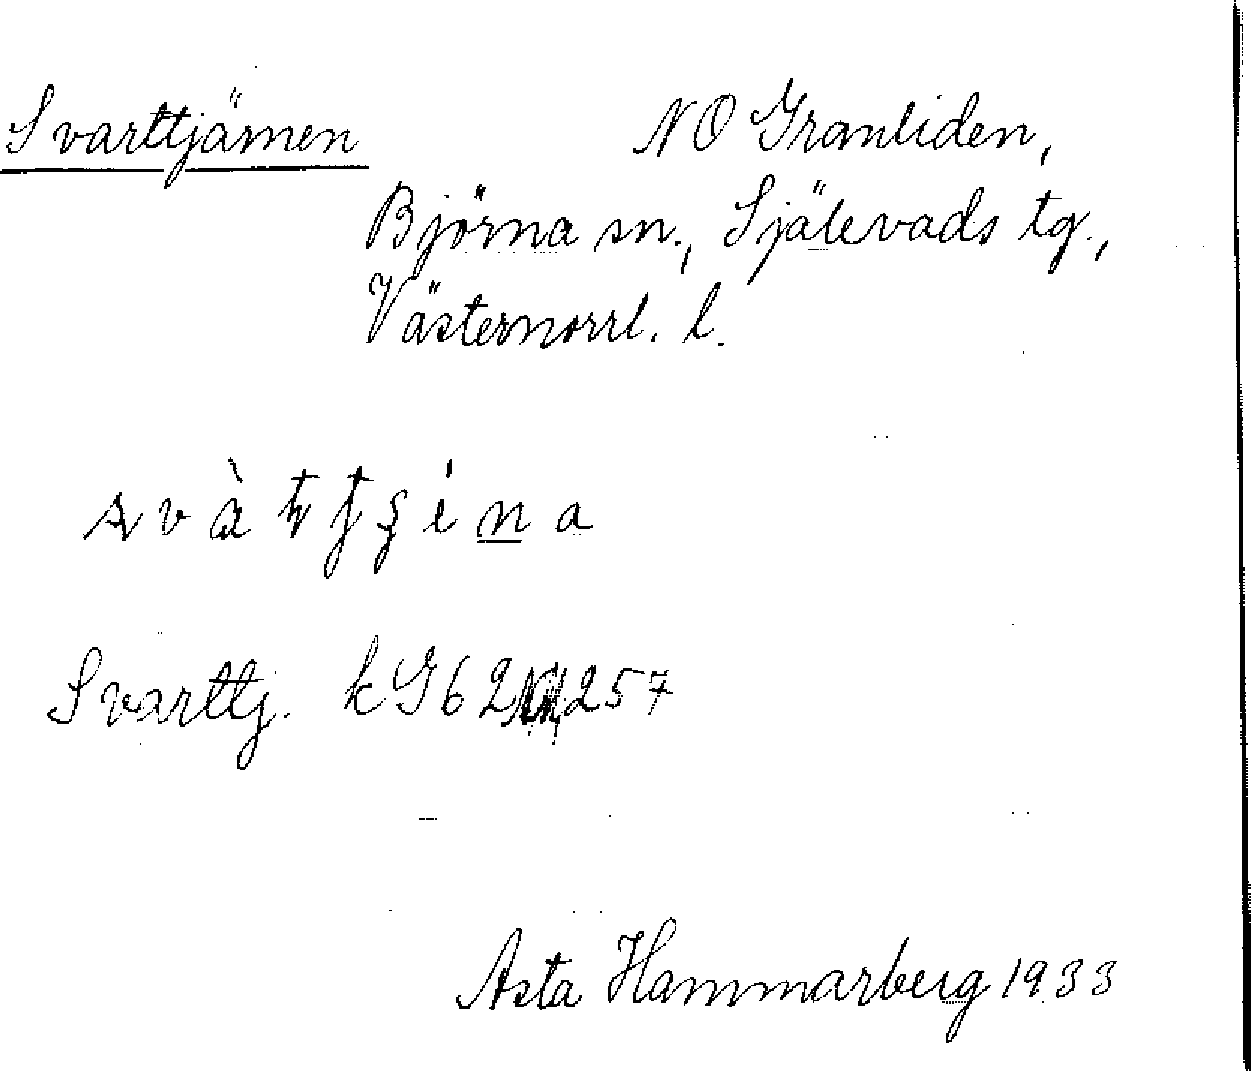 Svarttjärnen NO Granliden,
Björna sn., Själevads tg.,
Västernorrl. l.
Svarttj. kG62 257
Asta Hammarberg 1933